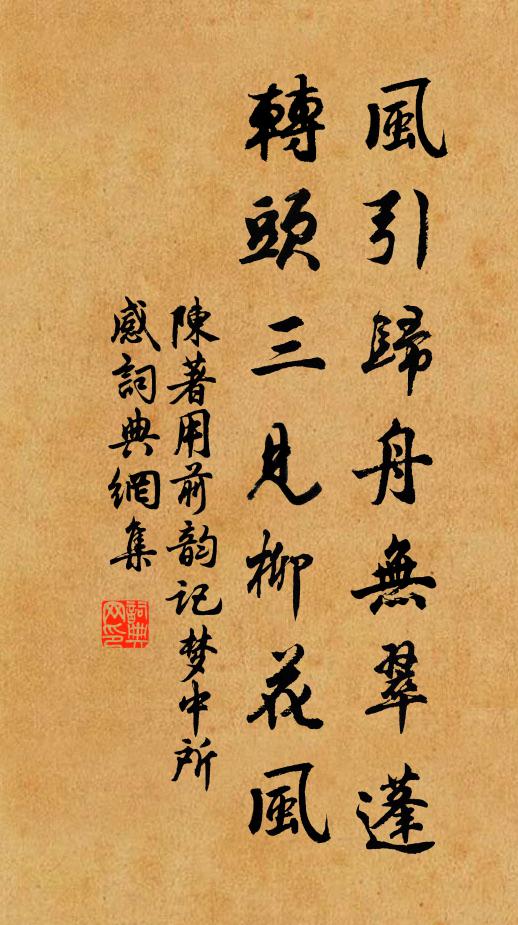 風引歸舟無翠蓬
轉頭三見柳花風
陳著用前韵记梦中所
感詞典網集
詞典
网印